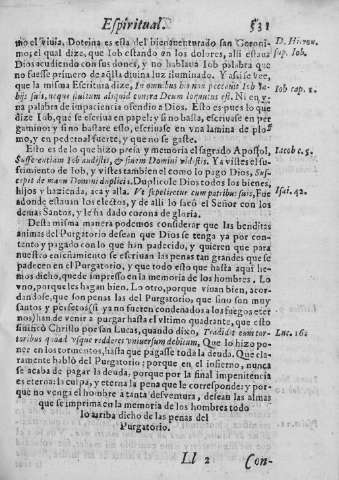 Espiritual. 531
mo el viuia, Dotrina es esta del bienauenturado san Geroni-
mo; el qual dize, que Iob estando en los dolores, alli estaua
Dios acudiendo con sus dones, y no hablaua Iob palabra que
no fuesse primero de aq̃lla diuina luz iluminado. Y assi se vee,
que la misma Escritura dize, In omnibus his non peccauit Iob la-
bijs suis, neque stultum aliquid contra Deum loquutus est. Ni en v-
na palabra de impaciencia ofendio a Dios. Esto es pues lo que
dize Iob, que se escriua en papel; y si no basta, escriuase en per
gamino; y si no bastare esto, escriuase en vna lamina de plo-
mo, y en pedernal fuerte, y que no se gaste.
Esto es de lo que hizo presa y memoria el sagrado Apostol,
Sufferentiam Iob audistis, & finem Domini vidistis. Ya vistes el su-
frimiento de Iob, y vistes tambien el como lo pagò Dios, Sus-
cepit de manu Domini duplicia. Duplicole Dios todos los bienes,
hijos y hazienda, aca y alla. Et sepelietur cum patribus suis, Fue
adonde estauan los electos, y de alli lo sacó el Señor con los
demas Santos, y le ha dado corona de gloria.
Desta misma manera podemos considerar que las benditas
animas del Purgatorio desean que Dios se tenga ya por con-
tento y pagado con lo que han padecido, y quieren que para
nuestro enseñamiento se escriuan las penas tan grandes que se
padecen en el Purgatorio, y que todo esto que hasta aqui he-
mos dicho, quede impresso en la memoria de los hombres. Lo
vno, porque les hagan bien. Lo otro, porque viuan bien, acor-
dandose, que son penas las del Purgatorio, que sino son muy
santos y perfetos (si ya no fueren condenados a los fuegos eter
nos) han de venir a purgar hasta el vltimo quadrante, que esto
sinificò Christo por san Lucas, quando dixo, Tradidit eum tor-
toribus quoad vsque redderet vniuersum debitum, Que lo hizo po-
ner en los tormentos, hasta que pagasse toda la deuda. Que cla-
ramente hablò del Purgatorio; porque en el infierno, nunca
se acaba de pagar la deuda, porque por la final impenitencia
es eterna la culpa, y eterna la pena que le corresponde; y por-
que no venga el hombre a tanta desventura, desean las almas
que se imprima en la memoria de los hombres todo
lo arriba dicho de las penas del
Purgatorio.
Ll 2 Con-
D. Hieron.
sup. Iob.
Iob cap. 2.
Iacob c. 5.
Isai. 42.
Luc. 16.